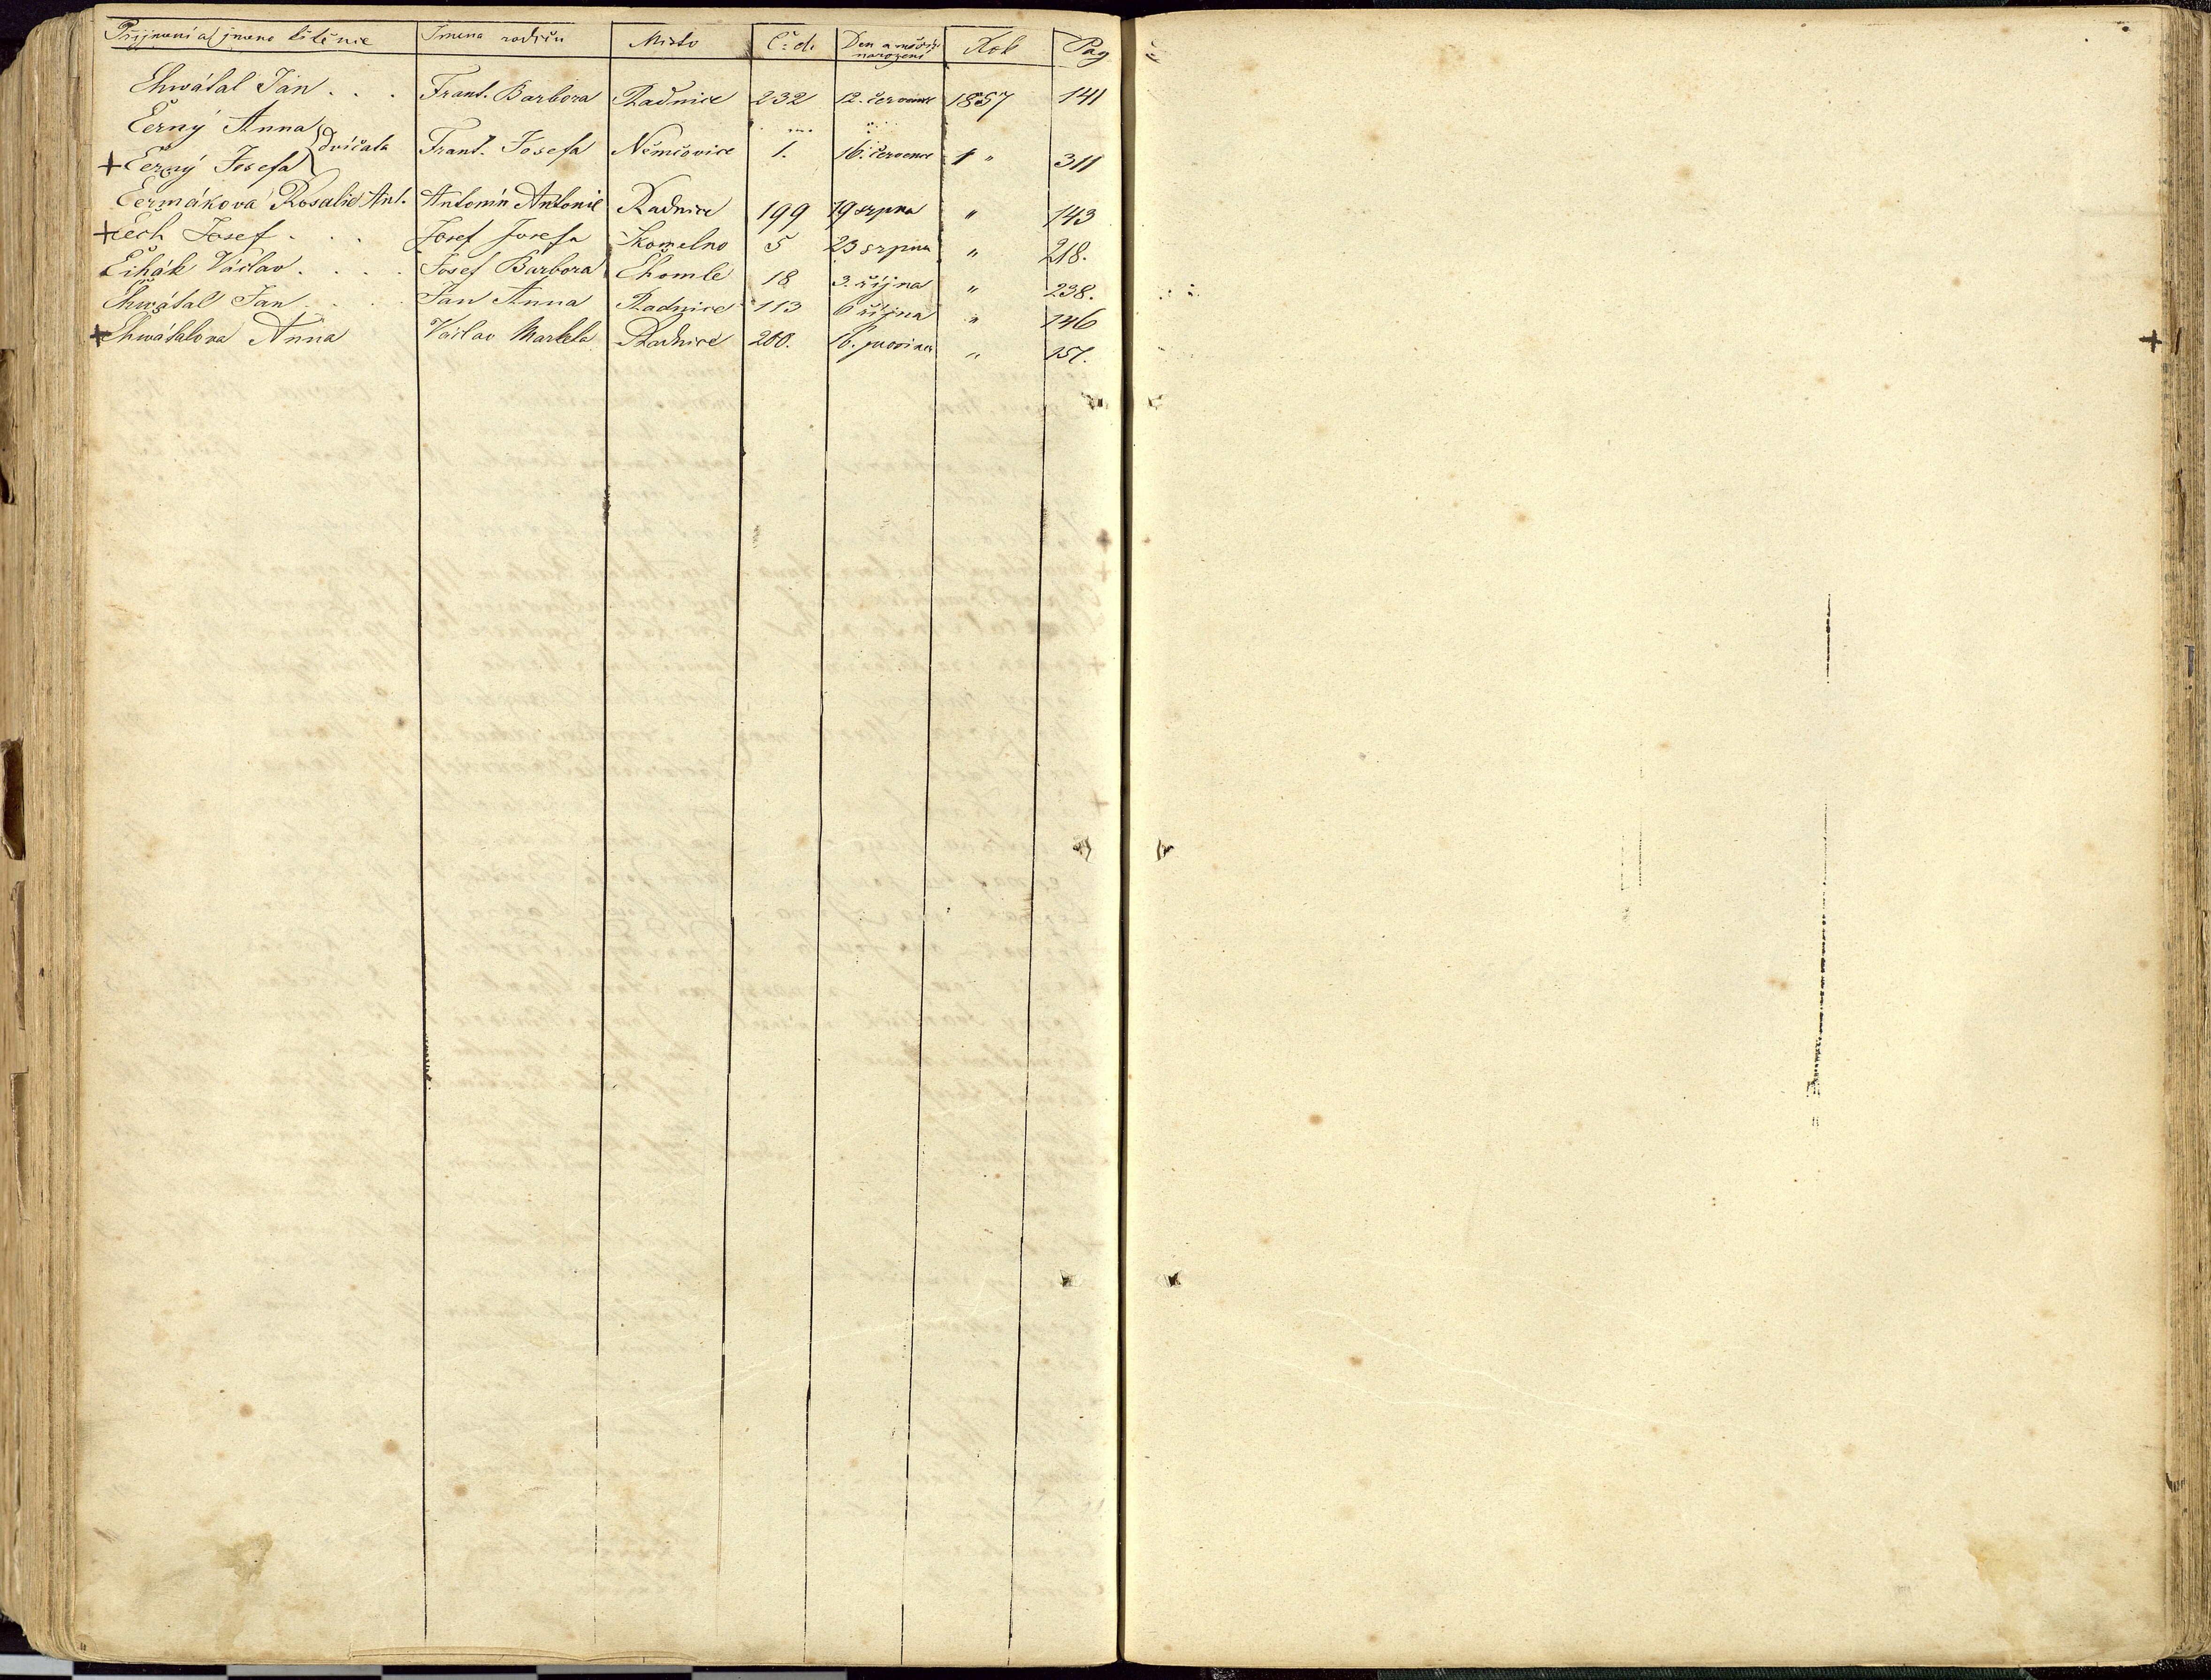 Přijmení a jmeno křtěnce Jmena rodičů Misto Č. d. Den a měsíc narozeni Rok Pag
Chwátal Jan . . . Frant. Barbora Radnice 232 12. července 1857 141
Černý Anna
dvičata Frant. Josefa Němčovice 1. 16. července " 311
+ Černý Josefa
Čermákova Rosalie Ant. Antonín Antonie Radnice 199 19 srpna " 143
+ Čech Josef . . . Josef Josefa Skomelno 5 23 srpna " 218.
Čihák Václav . . . . Josef Barbora Chomle 18 3. října " 238.
Chwátal Jan . . . Jan Anna Radnice 113 6 října " 146
+ Chwátalova Anna Václav Markéta Radnice 200. 16. prosince " 151.